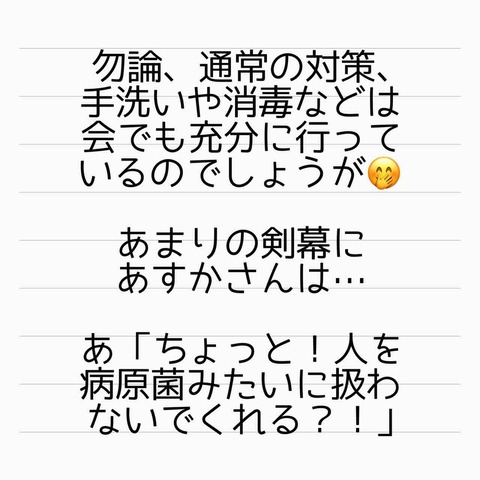 勿論、通常の対策、
手洗いや消毒などは
会でも充分に行って
いるのでしょうが🤭
あまりの剣幕に
あすかさんは…
あ「ちょっと！人を
病原菌みたいに扱わ
ないでくれる？！」